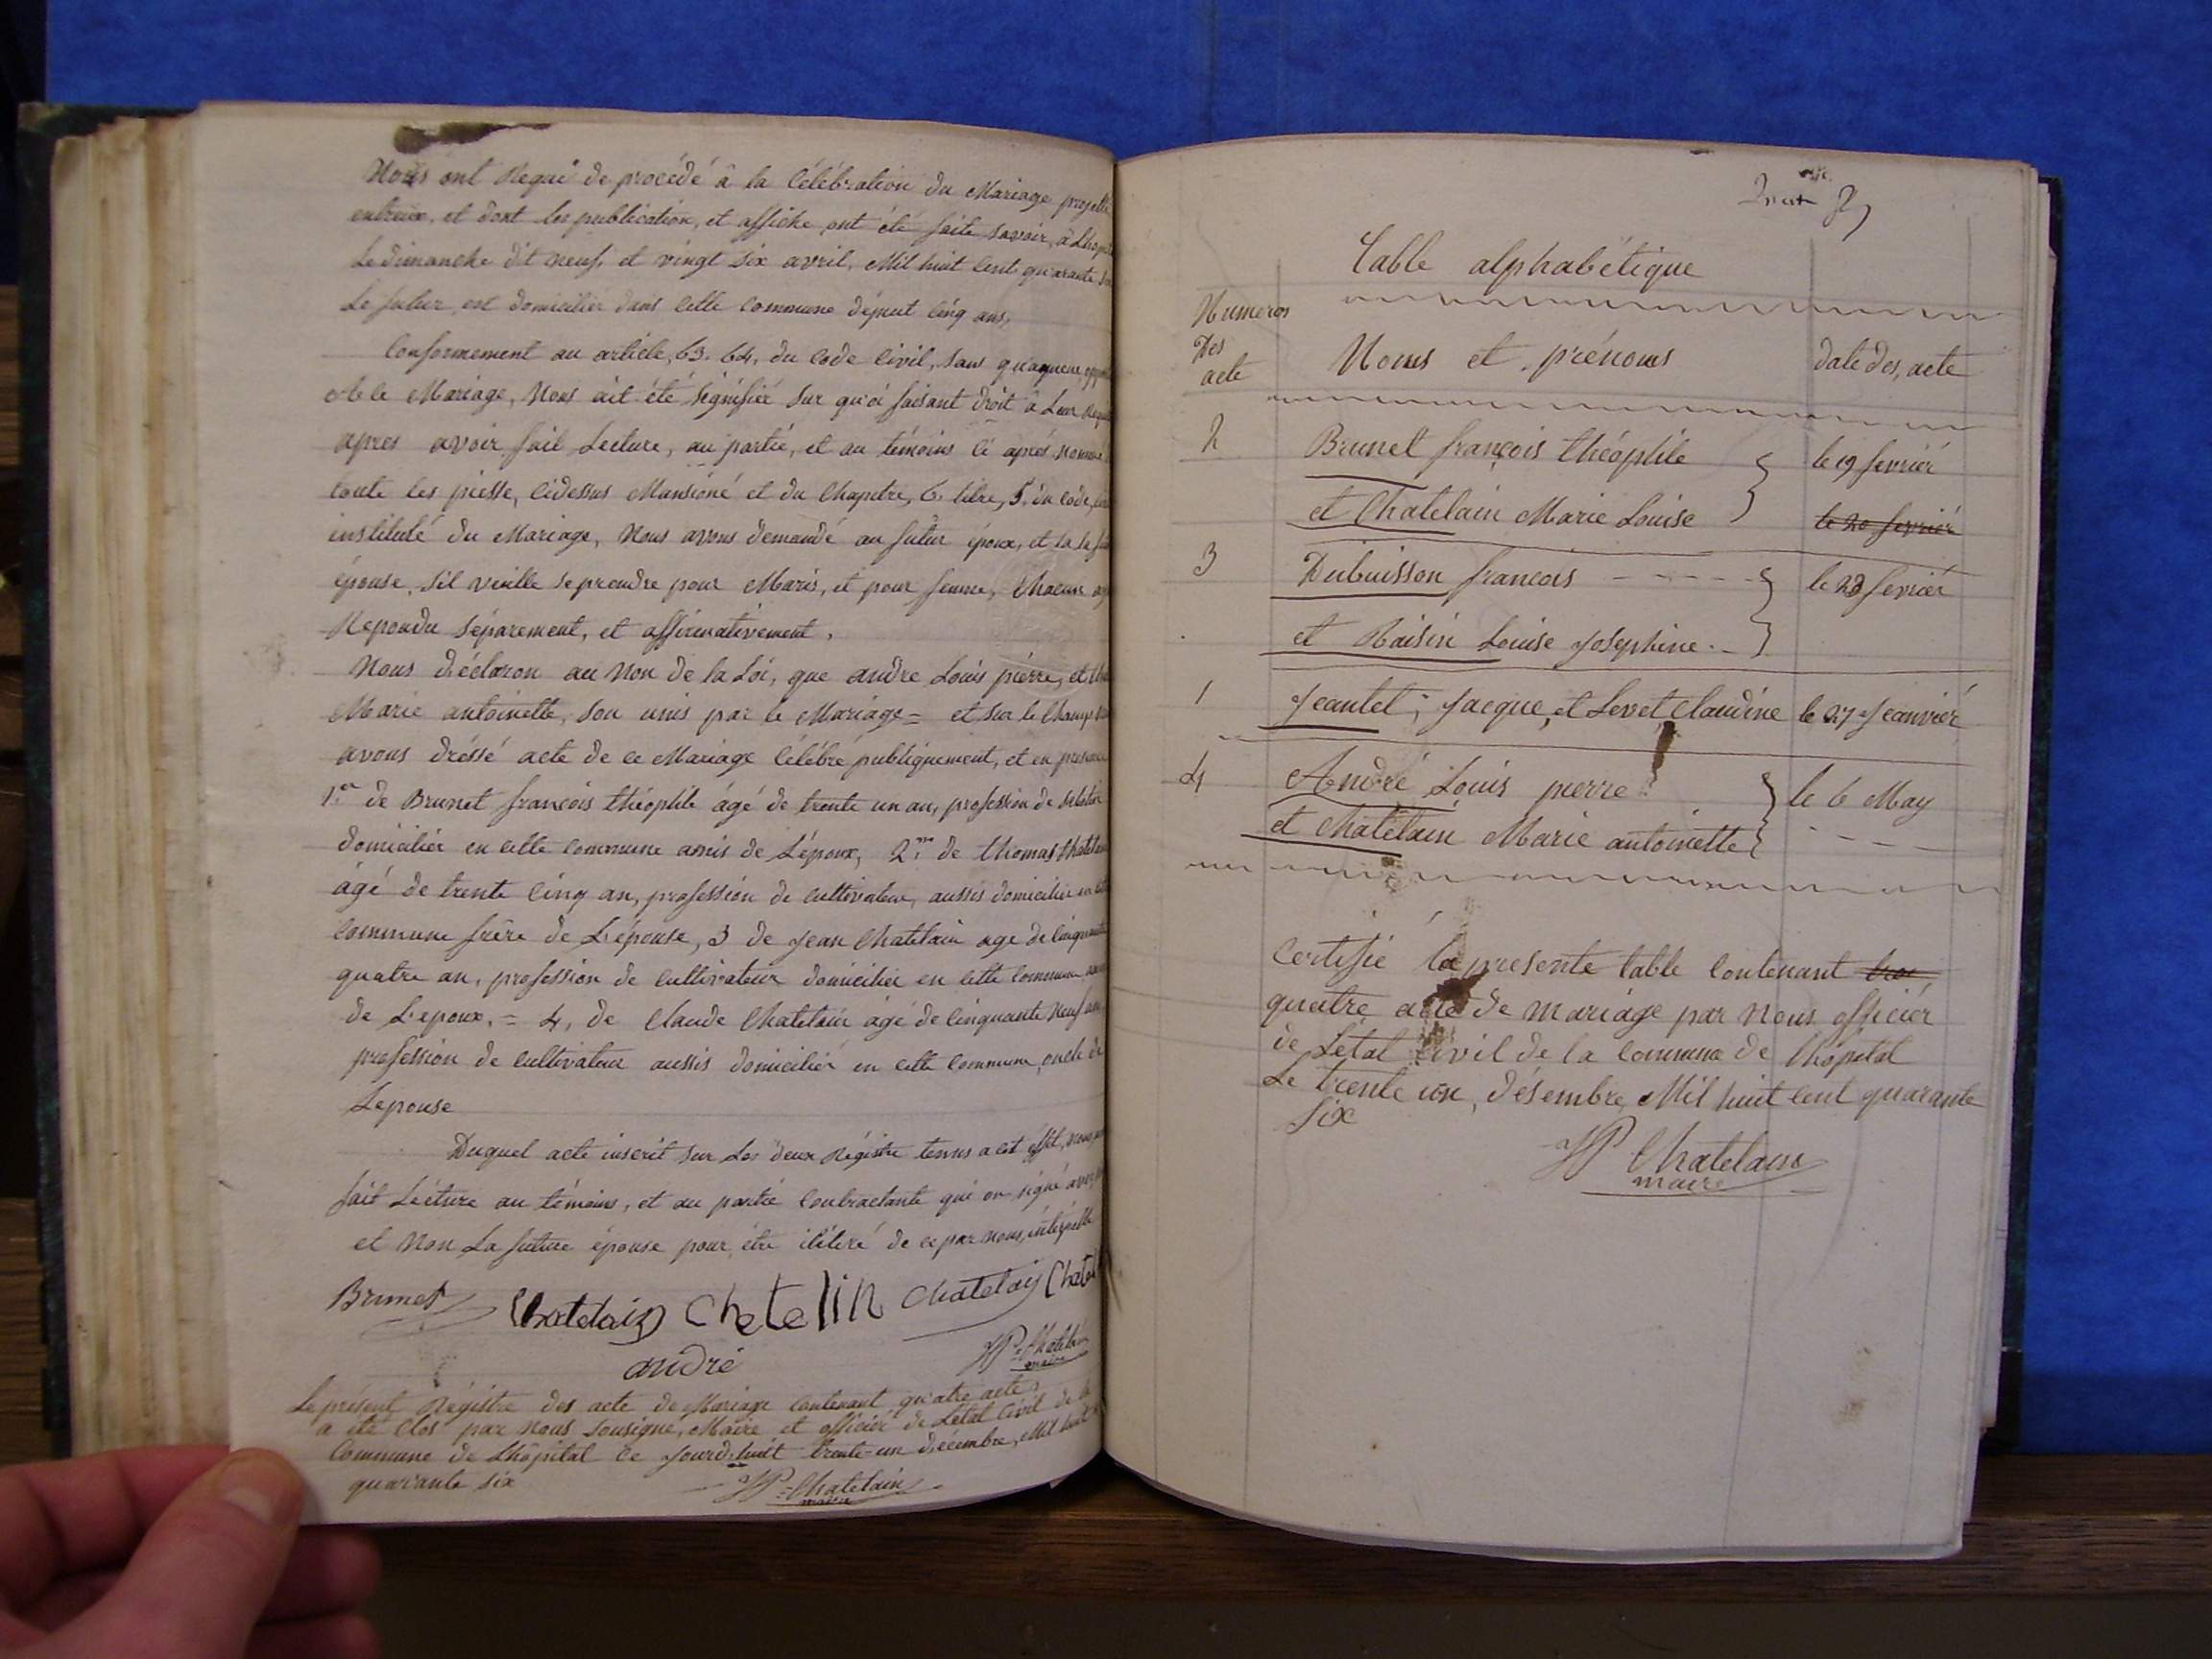 Nous ont Requi de procédé à la Célébration du Mariage projetté
entreux, et dont les publication, et affiche ont été faite savoir, à Lhopital
Le dimanche dit neuf, et vingt six avril, Mil huit Cent quarante six
Le futur est domicilier dans cette Commune déput Cinq ans,
Conformement au article, 63. 64, du code Civil, sans qu'aqueune
A le Mariage, Nous ait été signifié sur qu'oi faisant droit à Leur
apres avoir fait Lecture, au partié, et au témoins Ci après nommé
toute les piesse, Cidessus Mansioné et du Chapitre, 6. titre, 5. du code,
institulé du Mariage, Nous avons demandé au futur époux, et la
épouse, s'il veuille se prendre pour Maris, et pour femme, Chacun
Repondu séparement, et affirmativement,
Nous Déclaron au Non de la Loi, que andre Louis pierre, et
Marie antoinette, son unis par le Mariage = et sur le Champ
avons dréssé acte de ce Mariage Célébré publiquement, et en presence
1.er de Brunet francois théophile âgé de trente un an, profession de
domicilier en cette Commune amis de L'époux, 2.me de thomas Chatelain
âgé de trente Cinq an, profession de Cultivateur, aussis domicilier en
Commune frère de L'épouse, 3 de Jean Chatelain age de Cinquante
quatre an, profession de Cultivateur domicilier en cette Commune
de L'epoux. = 4, de Claude Chatelain âgé de Cinquante Neuf an
profession de Cultivateur aussis domicilier en cette Commune, oncle de
Lepouse
Duquel acte inscrit sur Les deux Régistre tenus a cet éffet, nous
fait Lecture au témoins, et au partié Contractante qui on signé avec
et Non La future épouse pour être iliteré de ce par nous,
Brunet Chatelain Chetelin Chatelain
andré JP = Chatelain
maire
Le présent Régistre des acte de Mariage Contenant quatre acte
a été Clos par Nous Sousigné, Maire et officier de Létat Civil de la
Commune de Lhôpital Ce Jourdhuit trente-un décembre, Mil huit
quarante six
JP = Chatelain
maire
Table alphabétique
Numeros
Des
acte
Noms et prénoms
date des, acte
2 Brunet françois théophile le 19 fevrier
et Chatelain Marie Louise le 20 fevrier
3 Dubuisson francois le 23 fevrier
et Raisin Louise Josephine. -
1 Jeantet, Jacque, et Levet Claudine le 27 Jeanvier
4 André Louis pierre le 6 May
et Chatelain Marie antoinette - - -
Certifié la presente table Contenant
quatre acte de mariage par Nous officier
de Létat Civil de la Commune de Lhopital
Le trente un, désembre Mil huit Cent quarante
six
JP Chatelain
maire